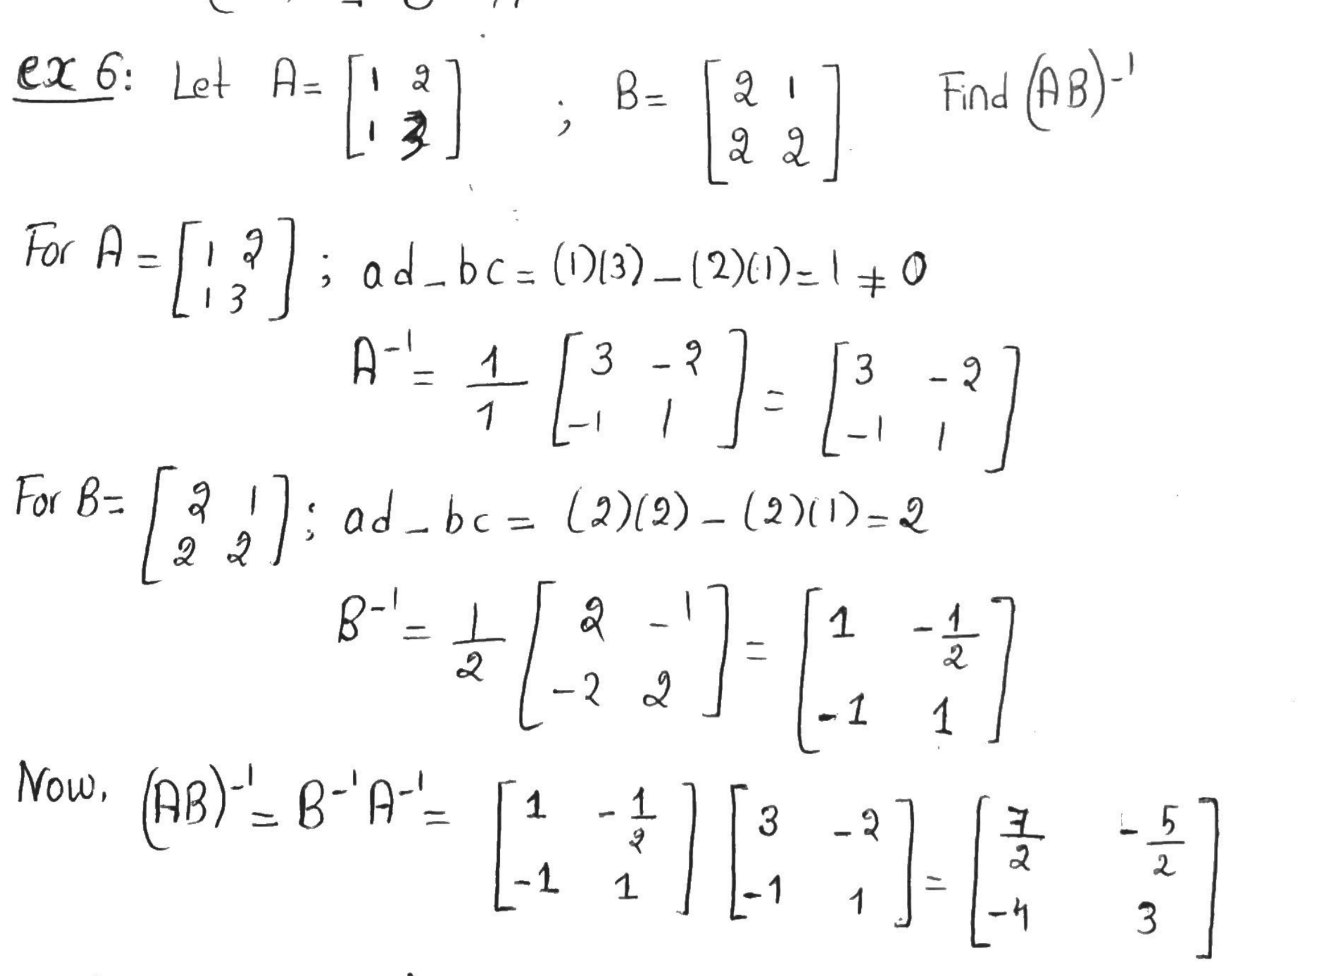 ex 6: Let A = [1 2; 1 3] ; B = [2 1; 2 2] Find (AB)⁻¹
For A = [1 2; 1 3] ; ad - bc = (1)(3) - (2)(1) = 1 ≠ 0
A⁻¹ = 1/1 [3 -2; -1 1] = [3 -2; -1 1]
For B = [2 1; 2 2] ; ad - bc = (2)(2) - (2)(1) = 2
B⁻¹ = 1/2 [2 -1; -2 2] = [1 -1/2; -1 1]
Now, (AB)⁻¹ = B⁻¹A⁻¹ = [1 -1/2; -1 1] [3 -2; -1 1] = [7/2 -5/2; -4 3]